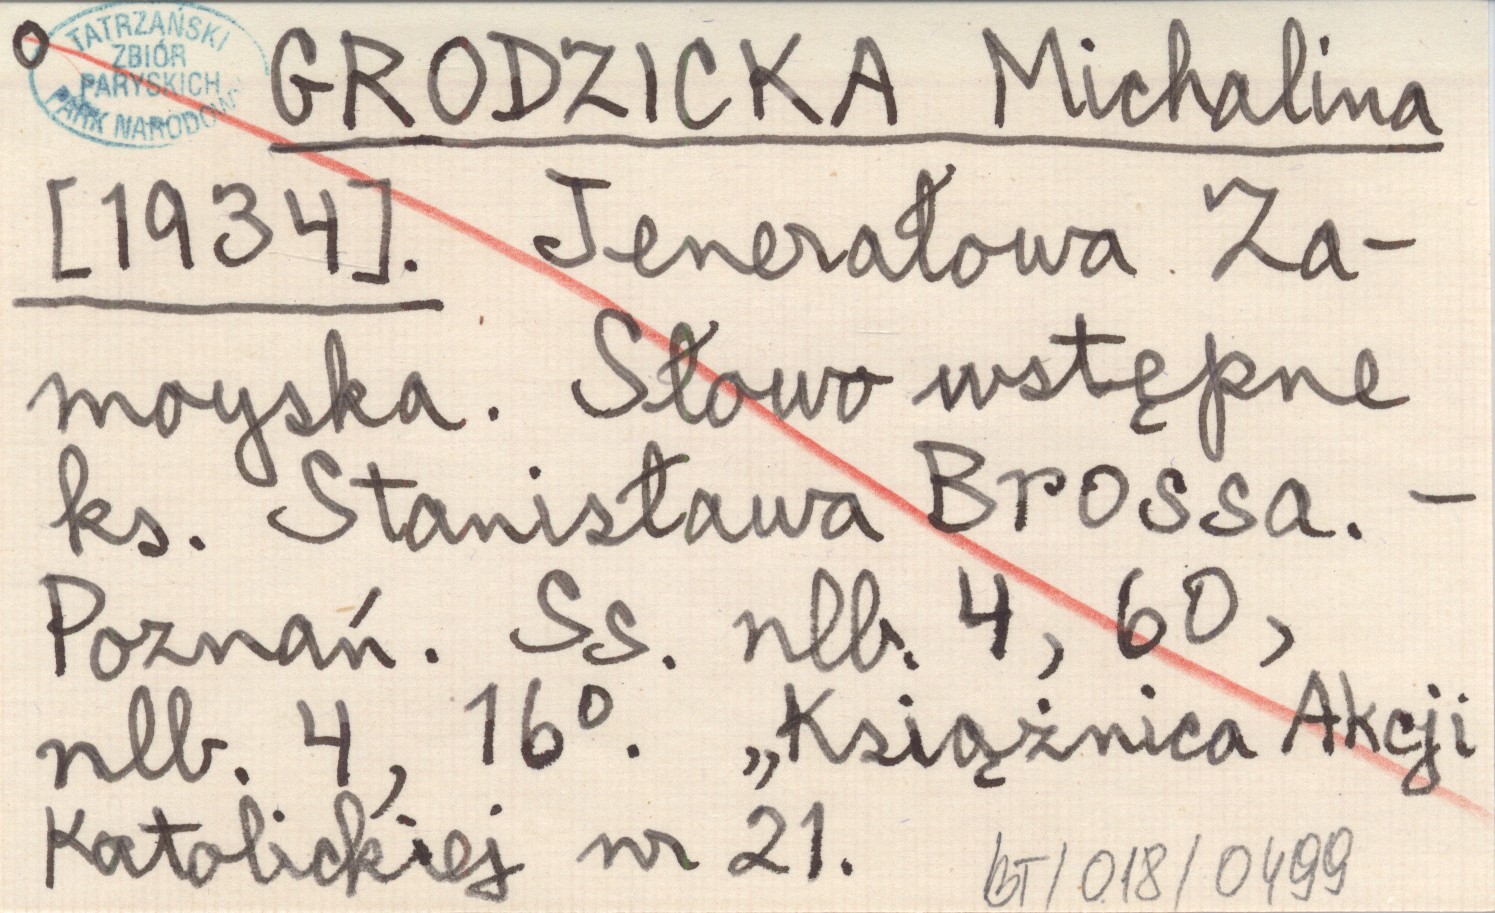 O
TATRZAŃSKI
ZBIÓR
PARYSKICH
PARK NARODOWY
GRODZICKA Michalina
[1934]. Jenerałowa Za-
moyska. Słowo wstępne
ks. Stanisława Brossa. –
Poznań. Ss. nlb. 4, 60,
nlb. 4, 16°. „Książnica Akcji
Katolickiej nr 21.
BT/018/0499